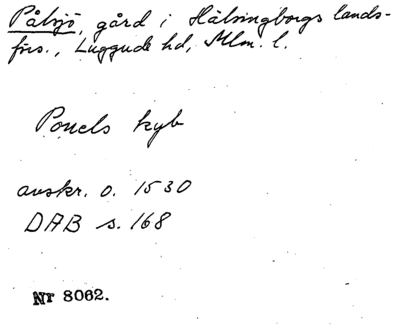 Pålsjö, gård i Hälsingborgs lands-
förs., Luggude hd, Mlm. l.
Pouels kyb
avskr. o. 1530
DAB s. 168
Nr 8062.